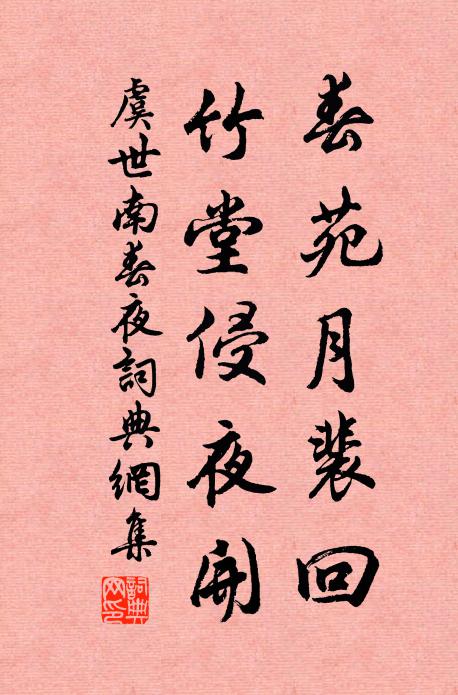 春苑月裴回
竹堂侵夜開
虞世南春夜詞典網集
詞典網印